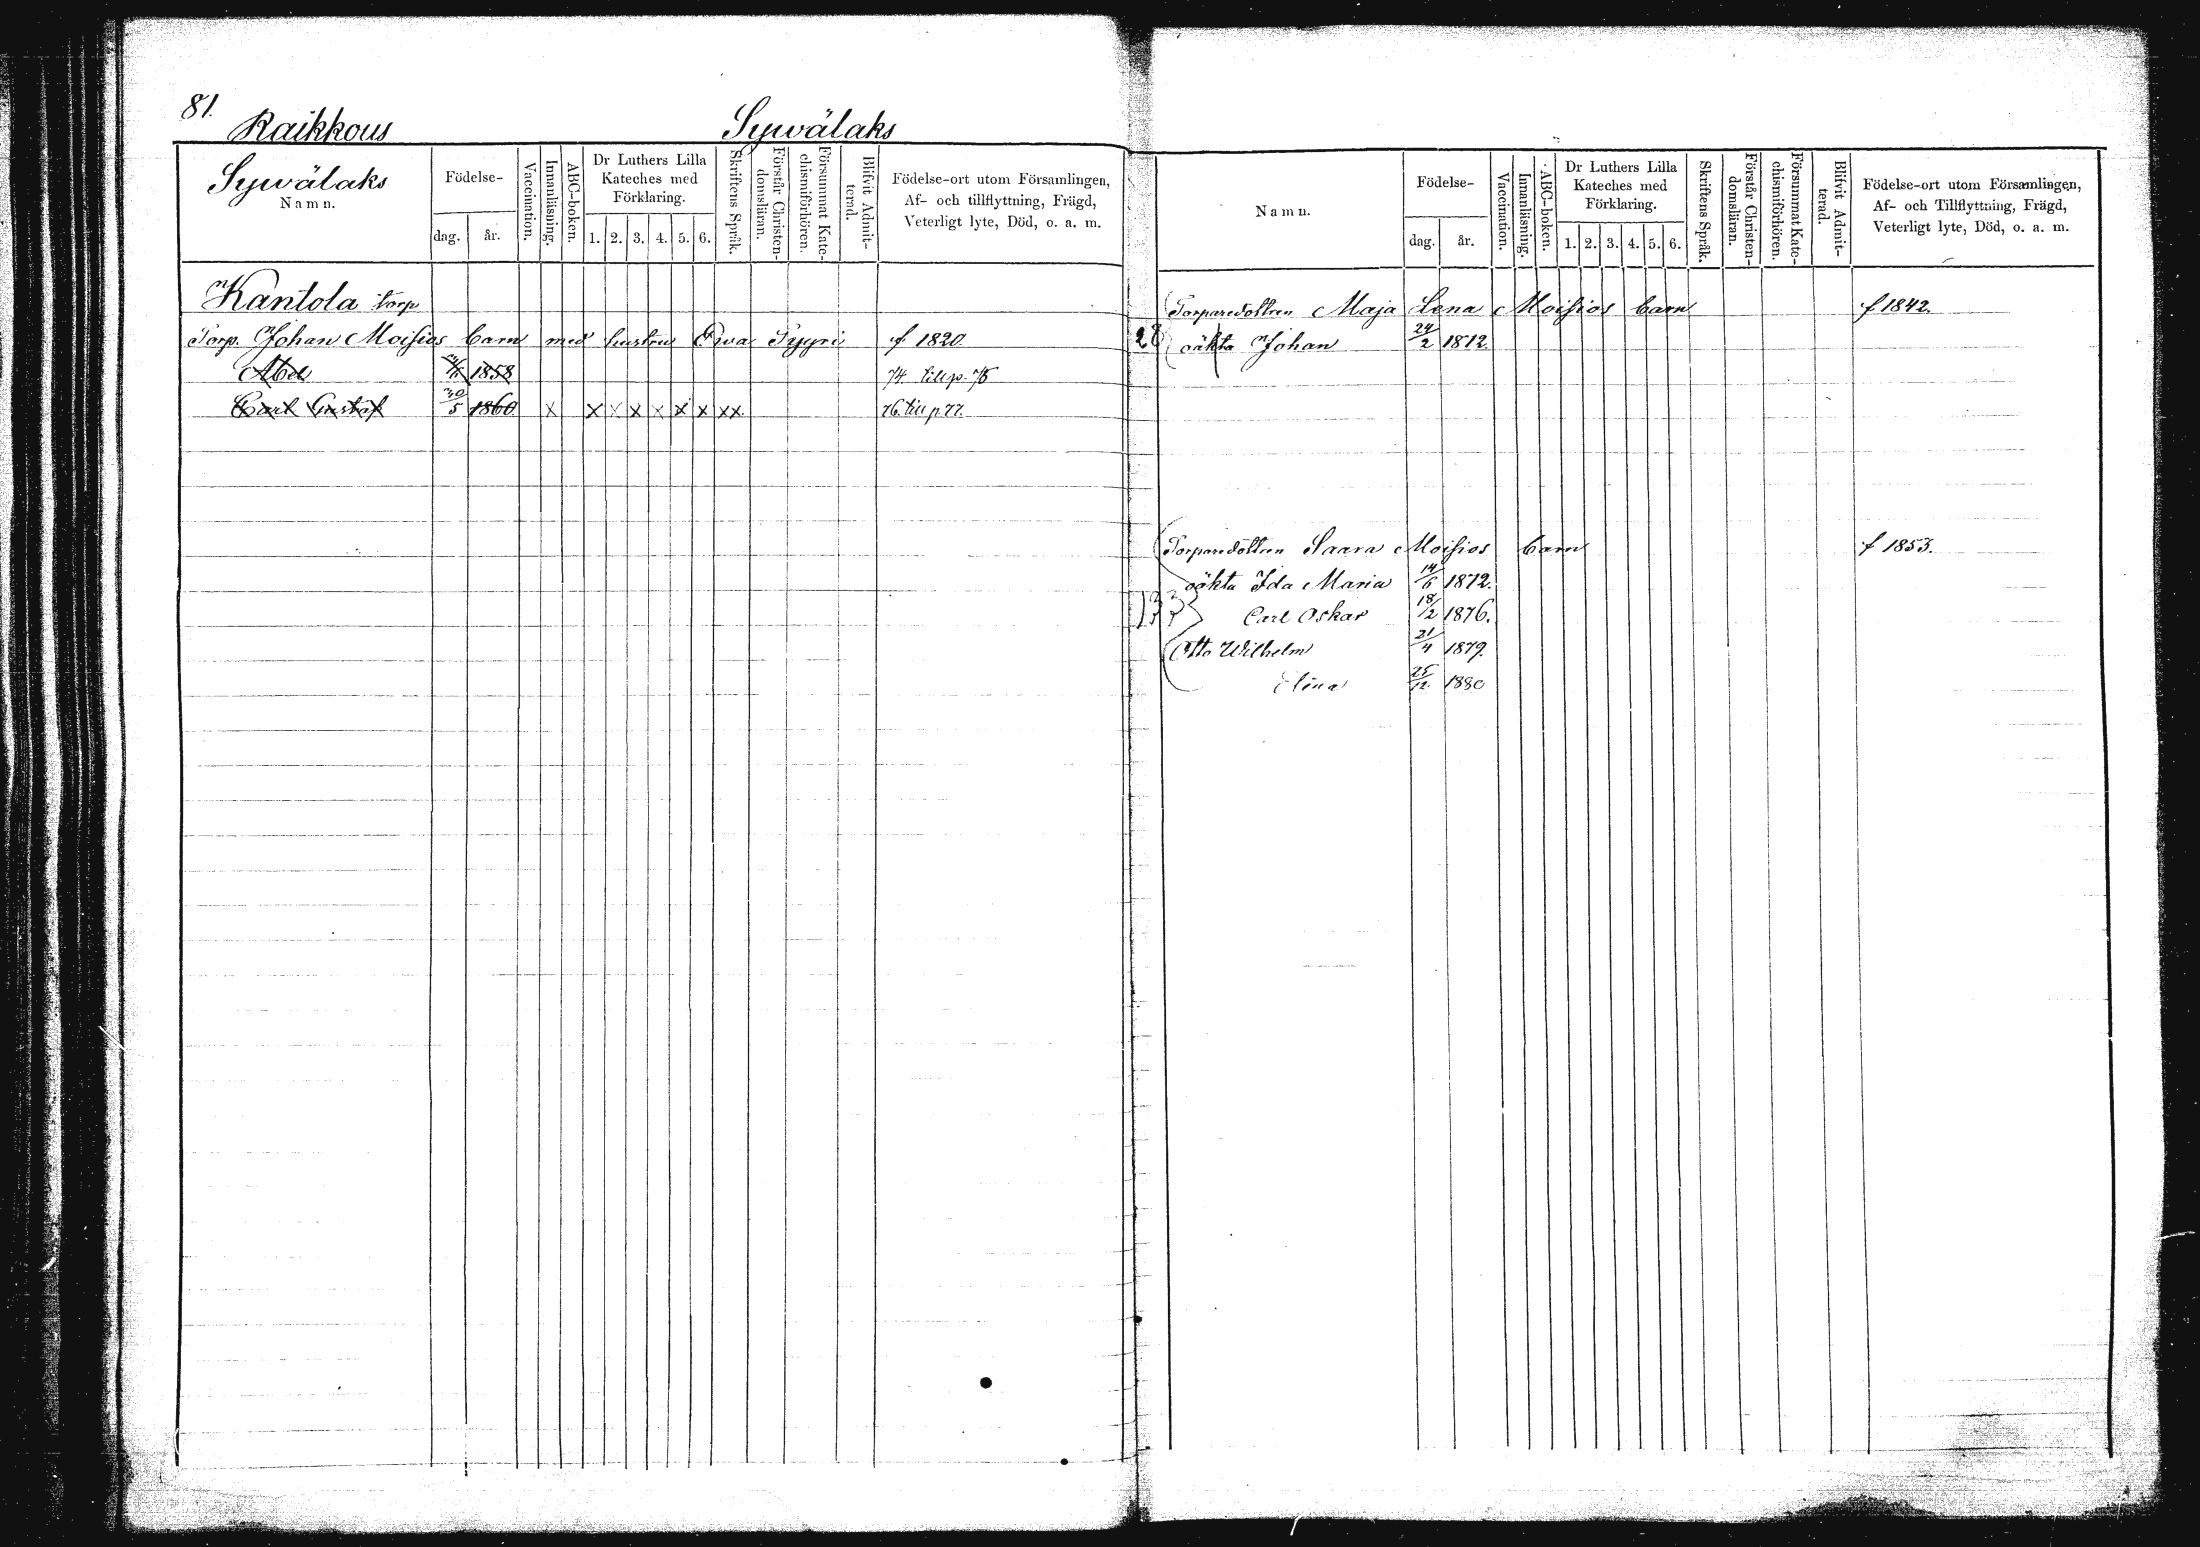 81.
Raikkous Sywälaks
Sywälaks
Namn.
Födelse-
dag. år.
Vaccination.
Innanläsning.
ABC-boken.
Dr Luthers Lilla
Kateches med
Förklaring.
1. 2. 3. 4. 5. 6.
Skriftens Språk.
Förstår Christen-
domsläran.
Försummat Kate-
chismiförhören.
Blifvit Admit-
terad.
Födelse-ort utom Församlingen,
Af- och tillflyttning, Frägd,
Veterligt lyte, Död, o. a. m.
Kantola torp
Torp. Johan Moisios barn med hustru Ewa Pyyri f 1820
Abel 1858 74 till p. 75
Carl Gustaf 30/5 1860 x x x x x x x xx 76. till p 77.
Namn.
Födelse-
dag. år.
Vaccination.
Innanläsning.
ABC-boken.
Dr Luthers Lilla
Kateches med
Förklaring.
1. 2. 3. 4. 5. 6.
Skriftens Språk.
Förstår Christen-
domsläran.
Försummat Kate-
chismiförhören.
Blifvit Admit-
terad.
Födelse-ort utom Församlingen,
Af- och Tillflyttning, Frägd,
Veterligt lyte, Död, o. a. m.
Torparedottren Maja Lena Moisios barn f 1842.
28 oäkta Johan 24/2 1872.
Torparedottren Saara Moisios barn f 1853.
oäkta Ida Maria 14/6 1872.
133 Carl Oskar 18/2 1876.
Otto Wilhelm 21/4 1879.
Elina 25/12. 1880